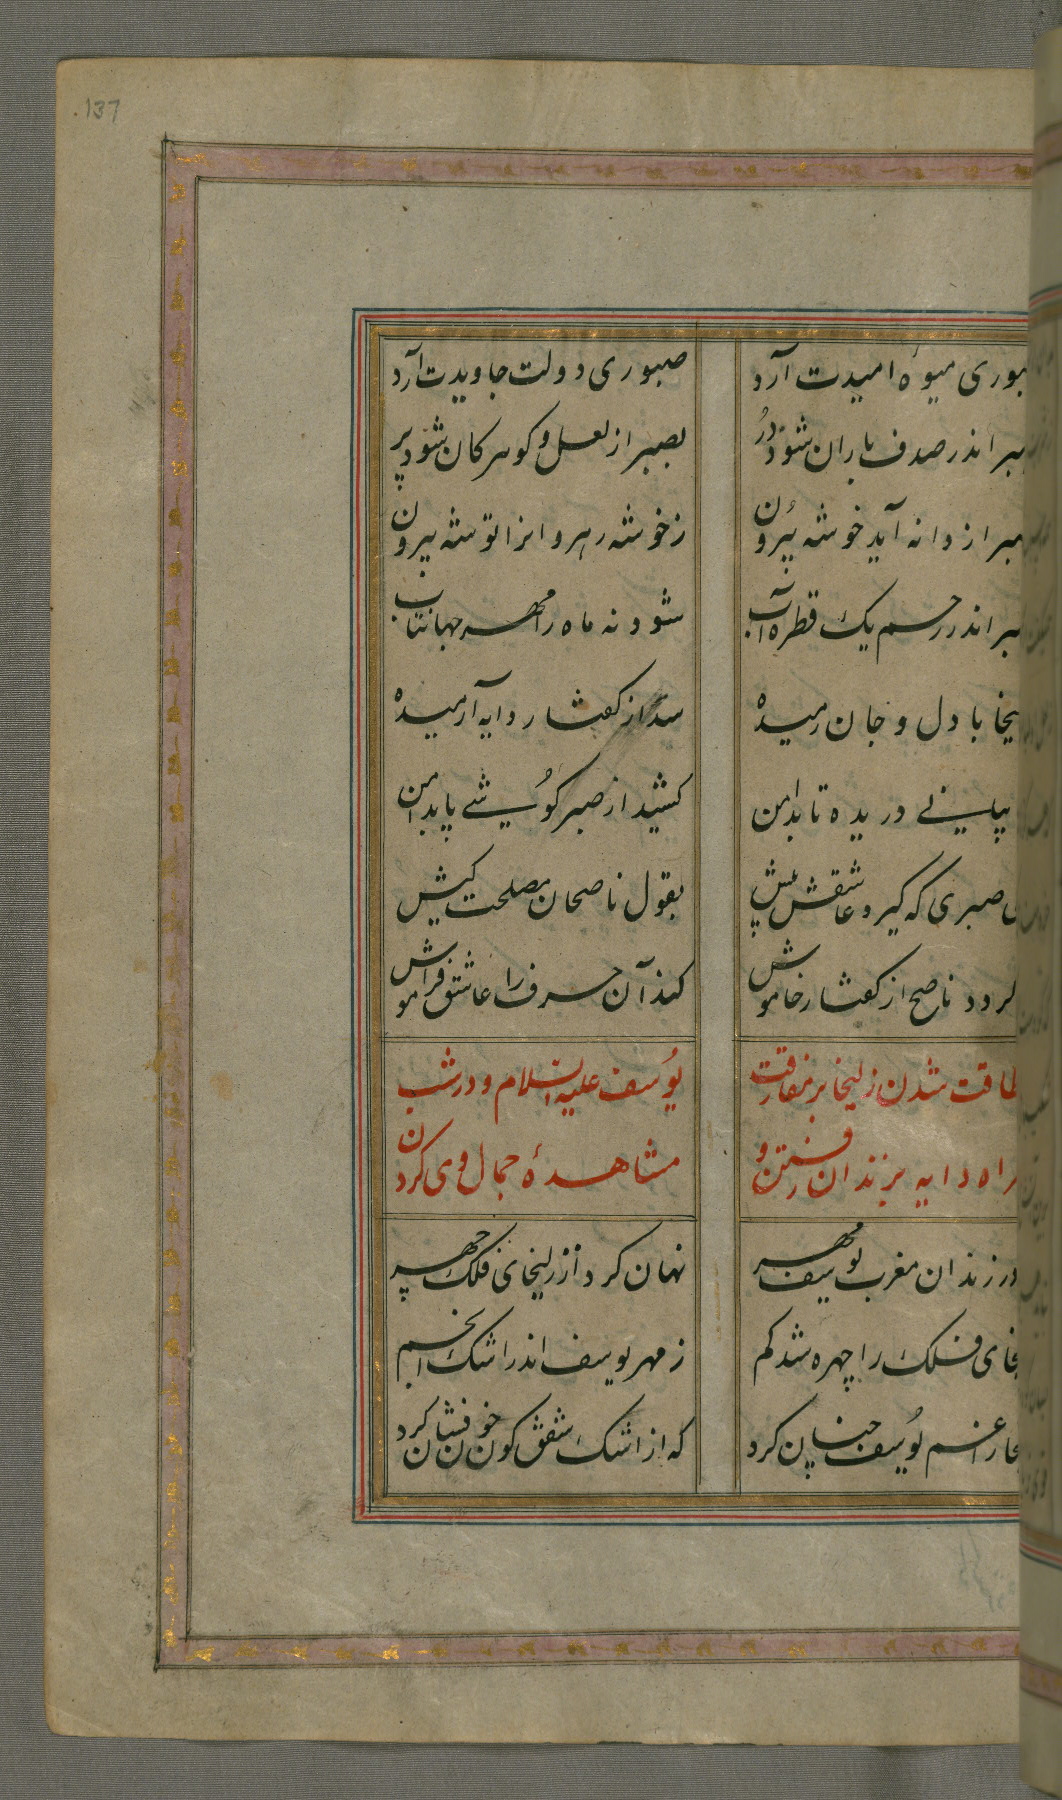 137
میوهٔ امیدت آرد صبوری دولت جاویدت آرد
اندر صدف باران شود دُر بصبر از لعل و کوهر کان شود پر
از دانه آید خوشه بیرون ز خوشه رهروانرا توشه بیرون
اندر رحم یک قطره آب شود نه ماه را مهر جهانتاب
با دل و جان رمیده شد از کفتار دایه آرمیده
دریده تا بدامن کشید از صبر کوشی پا بدامن
صبری که کیرد عاشقش پیش بقول ناصحان مصلحت کیش
ناصح از کفتار خاموش کند آن حرف را عاشق فراموش
طاقت شدن زلیخا بر مفارقت یوسف علیه السلام و در شب
دایه بزندان رفتن و مشاهدهٔ جمال وی کردن
در زندان مغرب یوسف مهر نهان کرد از زلیخای فلک چهر
فلک را چهره شد کم ز مهر یوسف اندر اشک انجم
غم یوسف چنان کرد که از اشک شفق کون خون فشان کرد